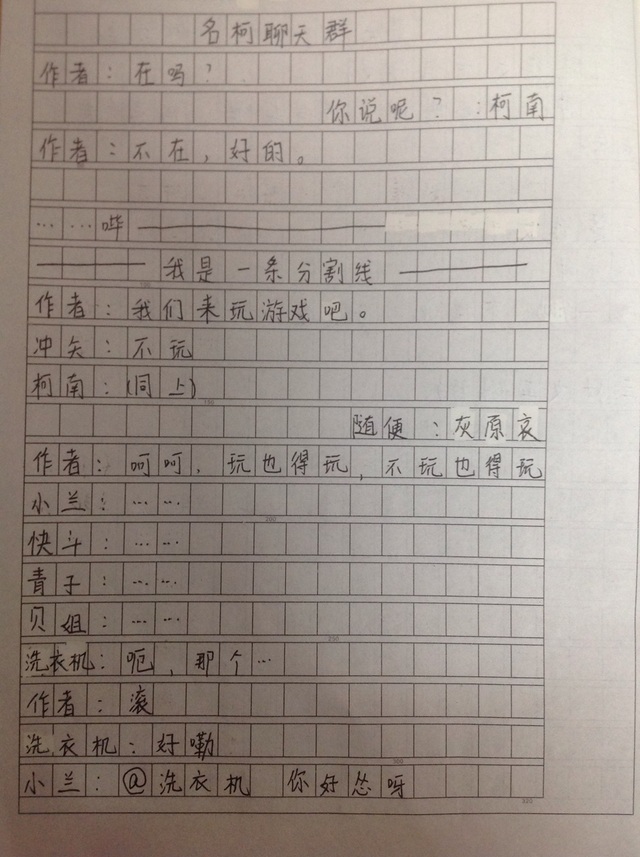 名柯聊天群
作者：在吗？
你说呢？：柯南
作者：不在，好的。
……哔————————
————我是一条分割线————
作者：我们来玩游戏吧。
冲矢：不玩
柯南：(同上)
随便：灰原哀
作者：呵呵，玩也得玩，不玩也得玩
小兰：……
快斗：……
青子：……
贝姐：……
洗衣机：呃，那个…
作者：滚
洗衣机：好嘞
小兰：@洗衣机 你好怂呀